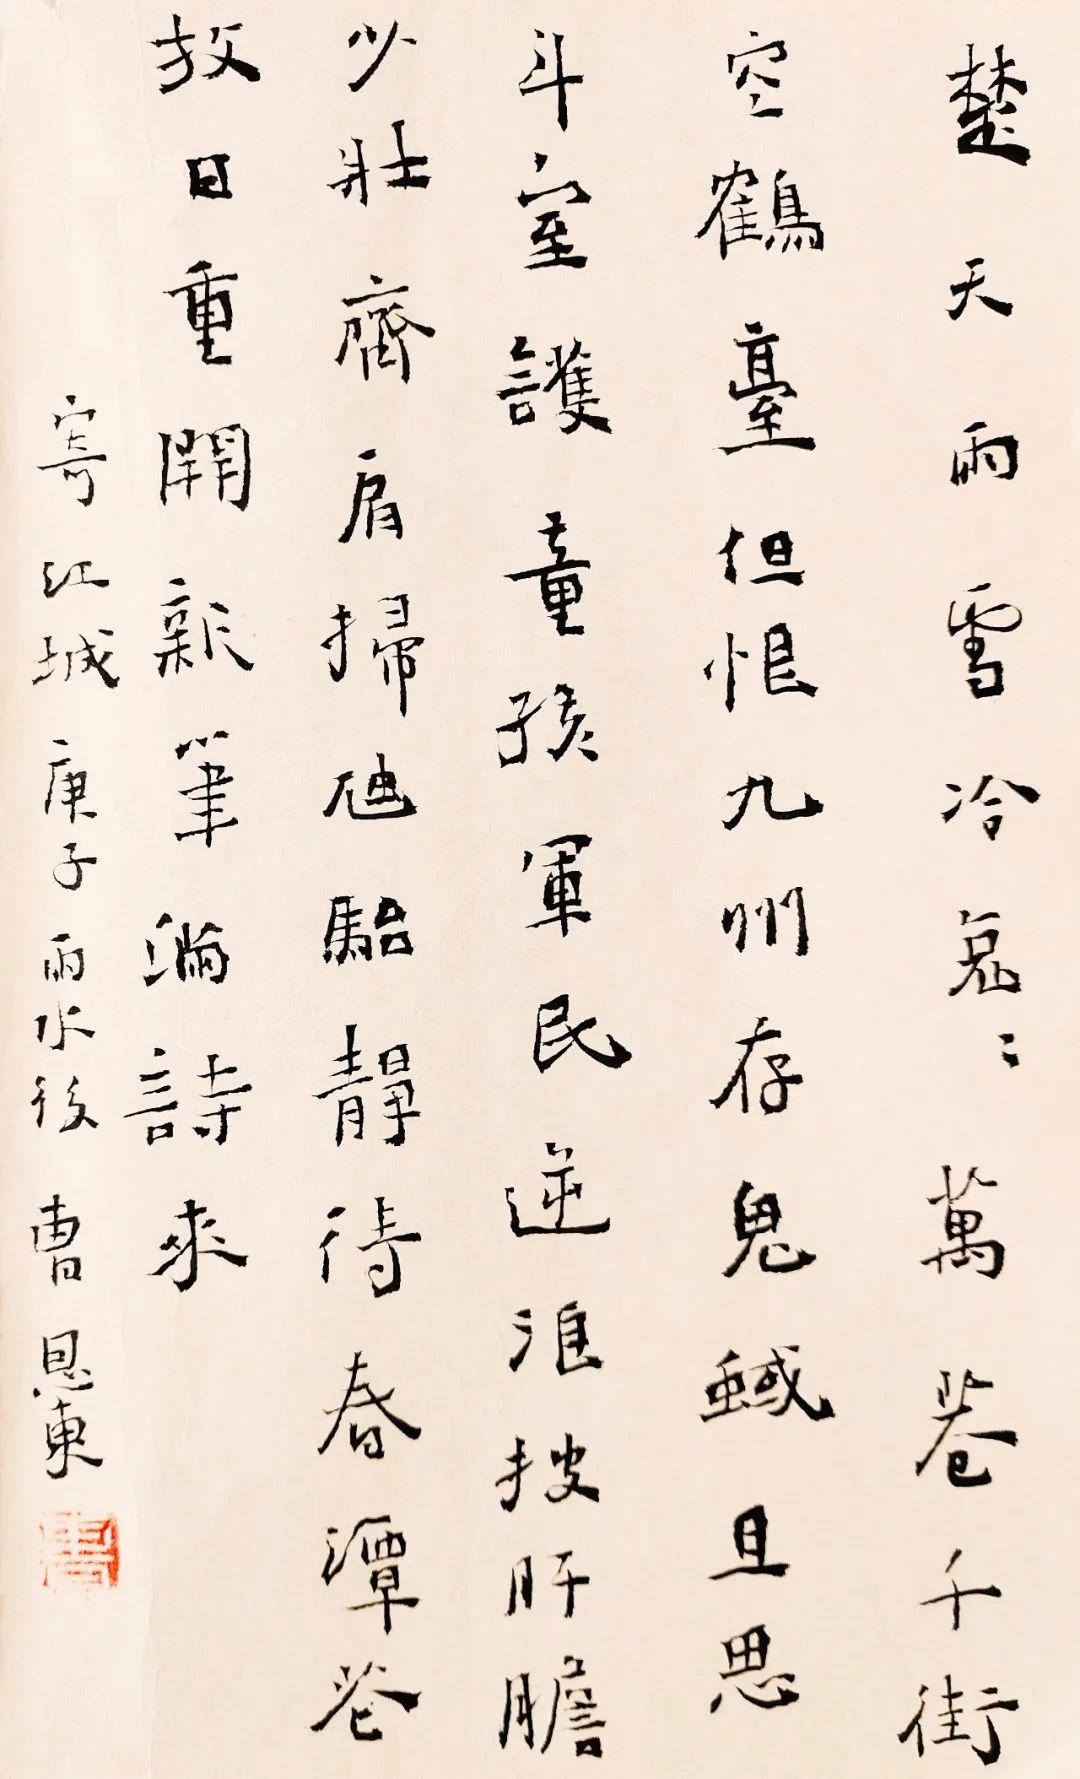 楚天雨雪冷哀〻萬巷千街
空鶴臺但恨九州存鬼蜮且思
斗室護童孩軍民逆披肝膽
少壯齊肩掃虺駘靜待春潭花
放日重開新筆滿詩來
寄江城 庚子雨水後 曹恩東